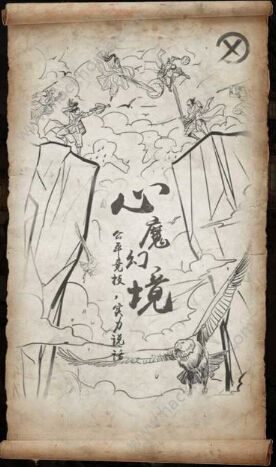 心魔幻境
公平竞技，实力说话